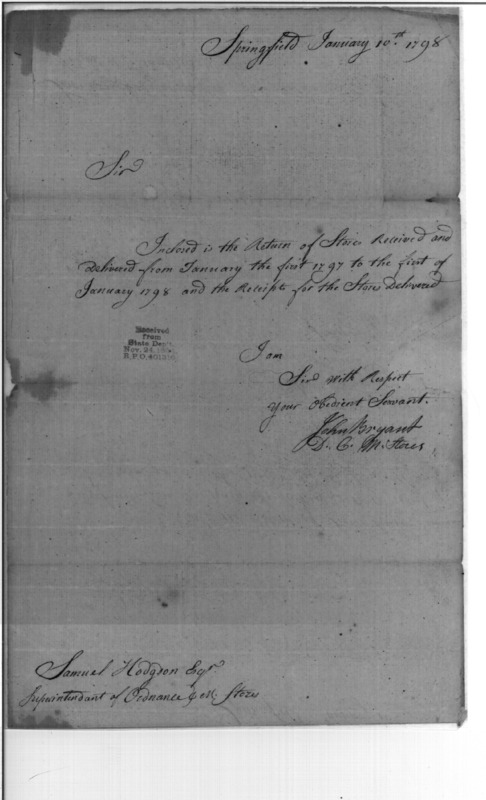 Springfield January 10th 1798
Sir
Inclosed is the Return of Stores Received and
Delivered from January the first 1797 to the first of
January 1798 and the Receipts for the Stores Delivered
Received
from
State Dept.
Nov. 24,
R.P.O.
I am
Sir with Respect
Your Obedient Servant
John Bryant
D. C. M. Stores
Samuel Hodgdon Esqr
Superintendant of Ordnance &c &c Stores